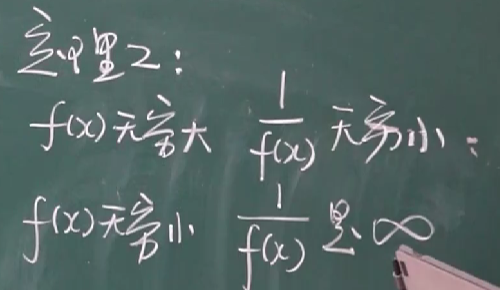 定理2:
f(x)无穷大 1/f(x) 无穷小:
f(x)无穷小 1/f(x) 是∞